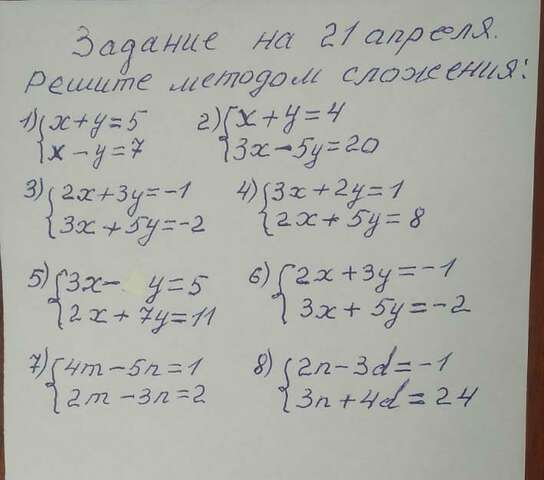 Задание на 21 апреля.
Решите методом сложения:
1) { x+y=5
x-y=7
2) { x+y=4
3x-5y=20
3) { 2x+3y=-1
3x+5y=-2
4) { 3x+2y=1
2x+5y=8
5) { 3x- y=5
2x+7y=11
6) { 2x+3y=-1
3x+5y=-2
7) { 4m-5n=1
2m-3n=2
8) { 2n-3d=-1
3n+4d=24